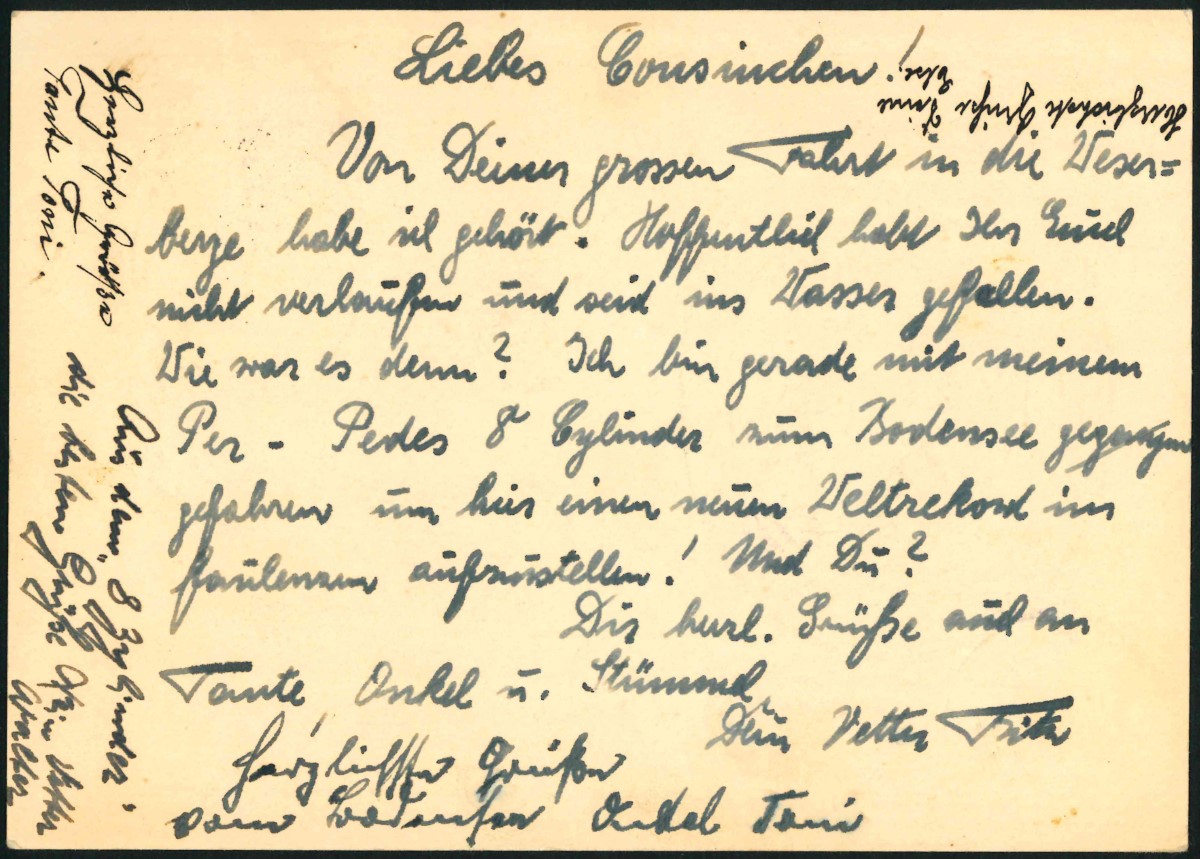 Liebes Cousinchen!
Von Deiner grossen Fahrt in die Weser=
berge habe ich gehört. Hoffentlich habt Ihr Euch
nicht verlaufen und seid ins Wasser gefallen.
Wie war es denn? Ich bin gerade mit meinem
Per - Pedes 8 Cylinder zum Bodensee gegangen
gefahren um hier einen neuen Weltrekord im
faulenzen aufzustellen! Und Du?
Dir herzl. Grüße auch an
Tante, Onkel u. Stümmel
Dein Vetter Fritz
Herzlichste Grüße
vom Bodensee Onkel Toni
Herzliche Grüße
Tante Toni.
Aus dem "8 Zylinder"
die besten Grüße Dein Vetter
Herzlichste Grüße Deine